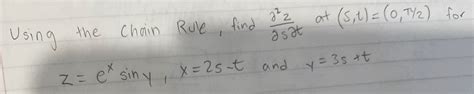 Using the Chain Rule, find ∂²z/∂s∂t at (s,t)=(0,π/2) for
z = eˣ sin y, x=2s-t and y=3s+t